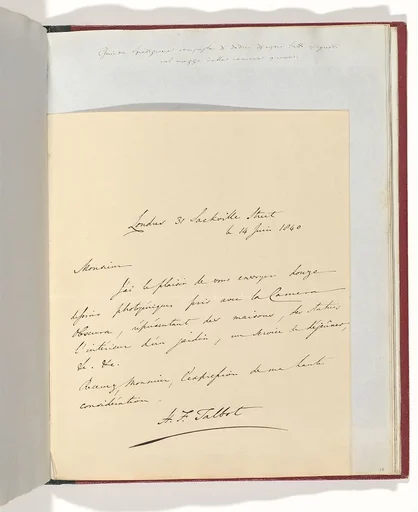 Londres 31 Sackville Street
le 14 Juin 1840
Monsieur
J'ai le plaisir de vous envoyer douze
dessins photogéniques pris avec la Camera
Obscura, réprésentant des maisons, des statues,
l'intérieur d'un jardin, un service de déjeûner,
&c. &c.
Recevez, Monsieur, l'expression de ma haute
considération.
H. F. Talbot